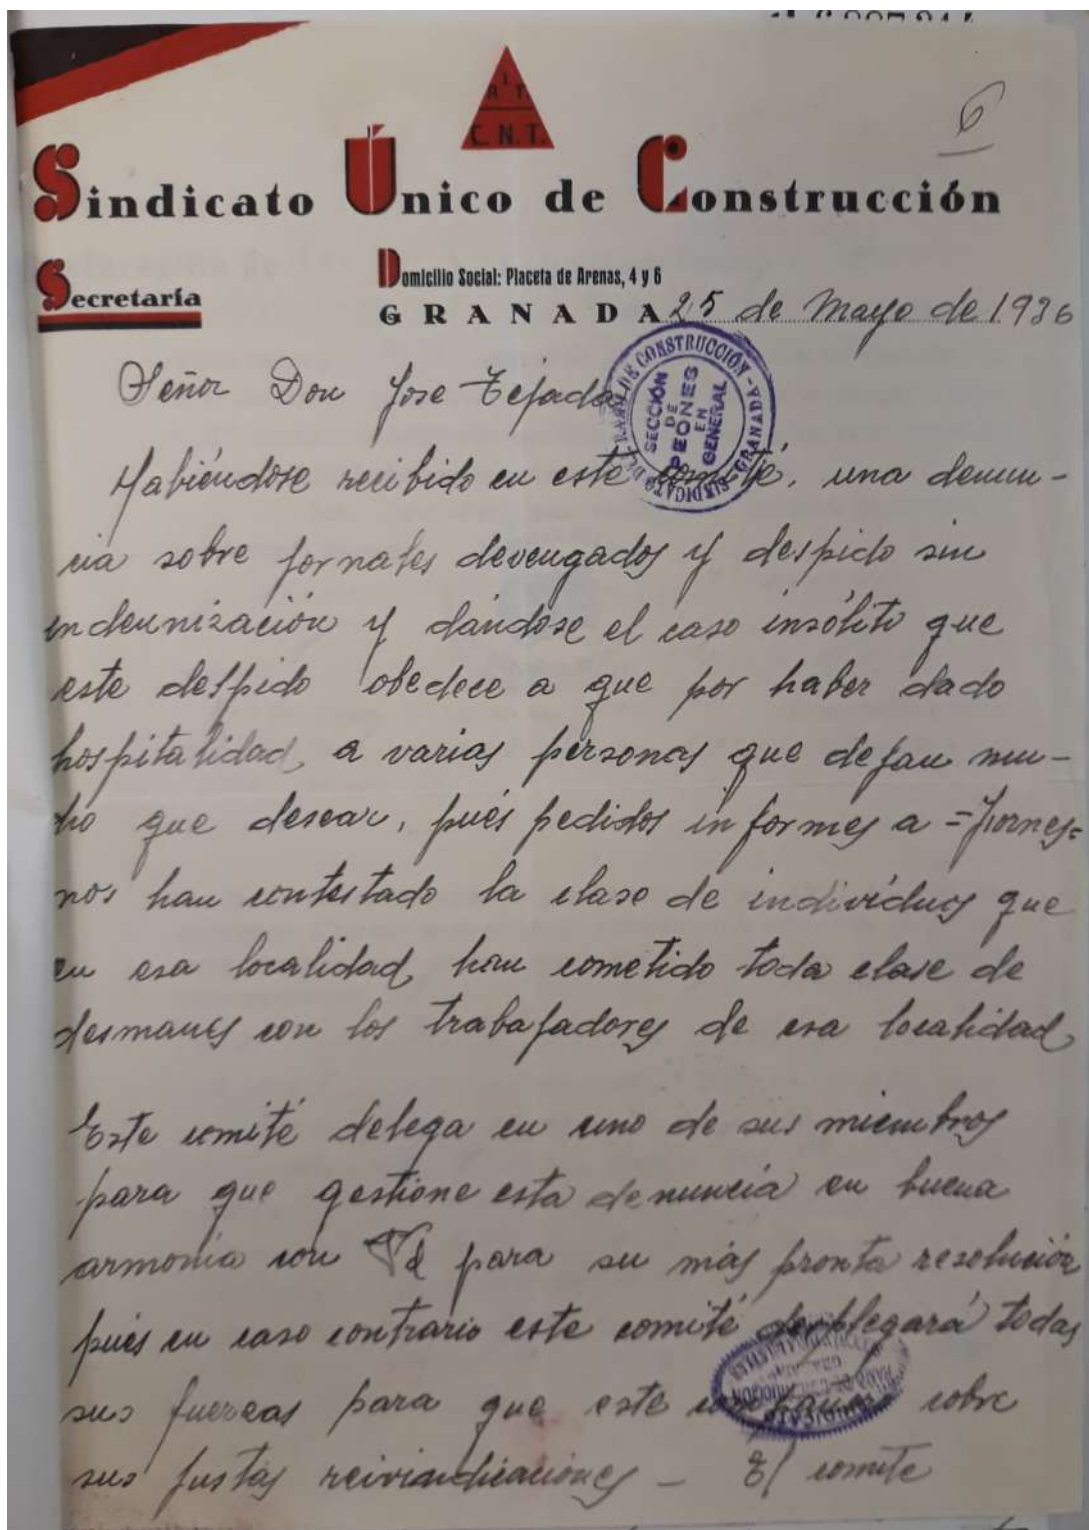 6
A I T
C.N.T.
Sindicato Único de Construcción
Secretaría
Domicilio Social: Placeta de Arenas, 4 y 6
GRANADA 25 de Mayo de 1936
SINDICATO DEL RAMO DE CONSTRUCCIÓN - GRANADA -
SECCIÓN
DE
PEONES
EN
GENERAL
Señor Don Jose Tejada
Habiéndose recibido en este comité, una denun-
cia sobre jornales devengados y despido sin
indennización y dándose el caso insólito que
este despido obedece a que por haber dado
hospitalidad, a varias personas que dejan mu-
cho que desear, pués pedidos informes a =Jornes=
nos han contestado la clase de individuos que
en esa localidad, han cometido toda clase de
desmanes con los trabajadores de esa localidad,
Este comité delega en uno de sus miembros
para que gestione esta denuncia en buena
armonía con Vd para su más pronta resolución
pués en caso contrario este comité desplegará todas
sus fuerzas para que este compañero cobre
sus justas reivindicaciones - El comite